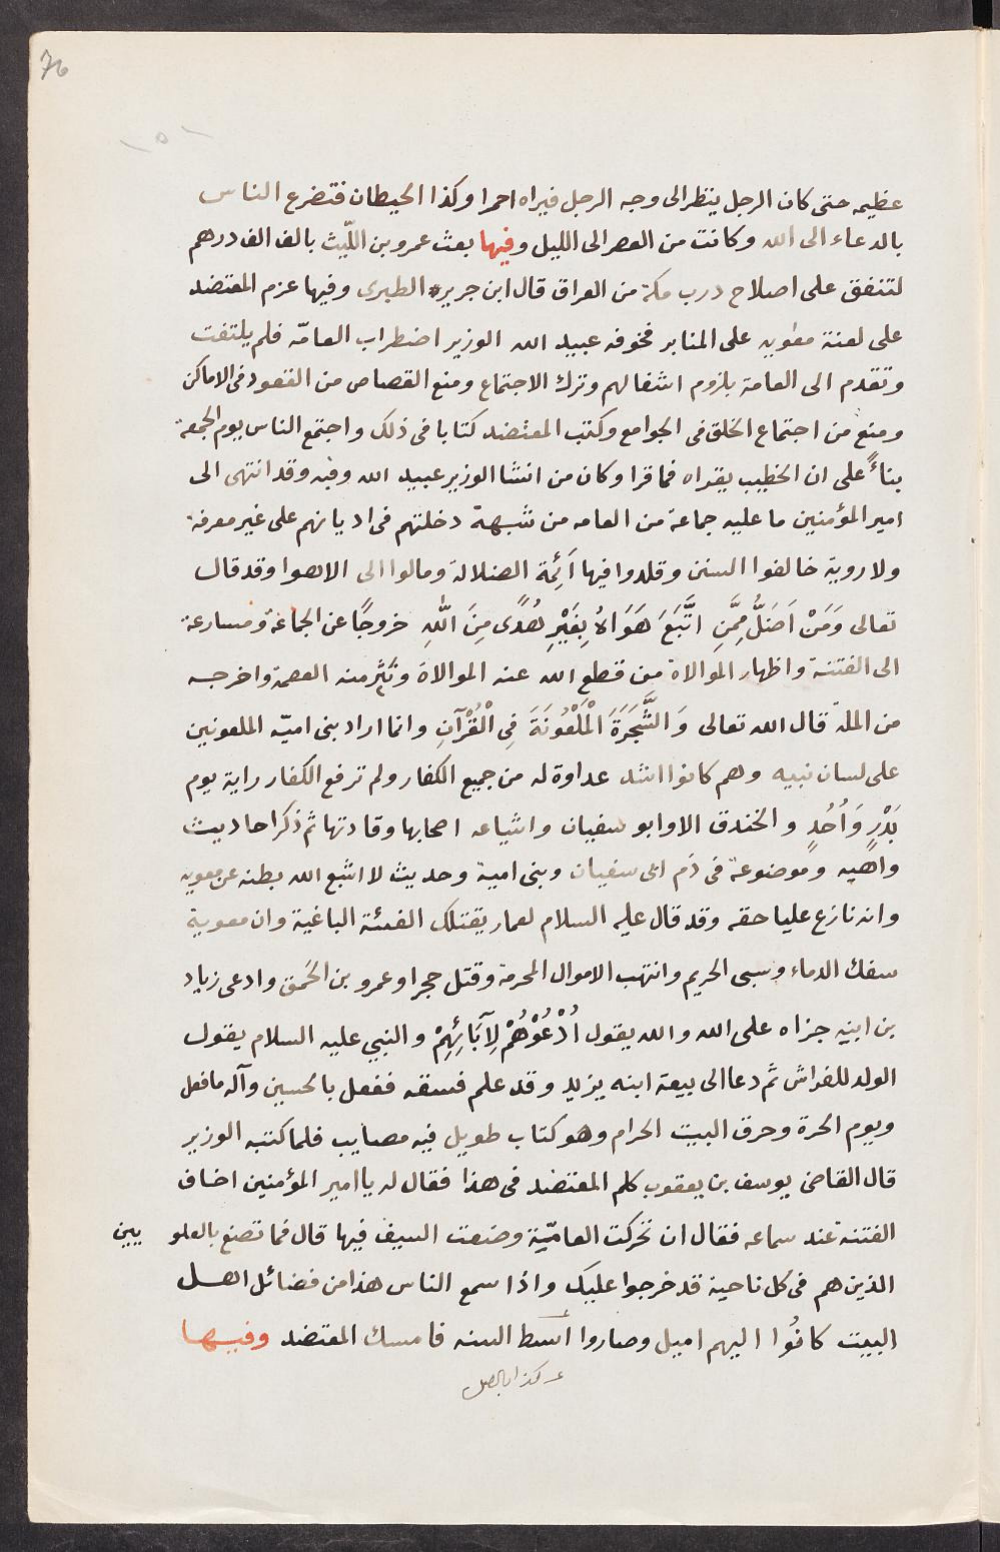 76
١٥١
عظيمه حتى كان الرجل ينظر الى وجه الرجل فيراه احمرا وكذا الحيطان فتضرع الناس
بالدعاء الى الله وكانت من العصر الى الليل وفيها بعث عمرو بن اللّيث بالف الف درهم
لتنفق على اصلاح درب مكة من العراق قال ابن جرير الطبرى وفيها عزم المعتضد
على لعنة معٰويه على المنابر فخوفه عبيد الله الوزير اضطراب العامّه فلم يلتفت
وتقدم الى العامة بلزوم اشغالهم وترك الاجتماع ومنع القصاص من القعود فى الاماكن
ومنع من اجتماع الخلق فى الجوامع وكتب المعتضد كتابا فى ذلك واجتمع الناس يوم الجمعة
بناءً على ان الخطيب يقراه فما قرا وكان من انشا الوزير عبيد الله وفيه وقد انتهى الى
امير المؤمنين ما عليه جماعة من العامه من شبهة دخلتهم فى اديانهم على غير معرفة
ولا روية خالفوا السنن وقلدوا فيها اَئِمة الضلالة ومالوا الى الاهوا وقد قال
تعالى وَمَنْ اَضَلُّ مِمَّنِ اتَّبَعَ هَوَاهُ بِغَيْرِ هُدًى مِنَ اللّٰهِ خروجًا عن الجماعة ومسارعة
الى الفتنة واظهار الموالاة من قطع الله عنه الموالاة وبَتِر منه العصمة واخرجه
من الملة قال الله تعالى وَ الشَّجَرَةَ الْمَلْعُونَةَ فِى الْقُرْآنِ وانما اراد بنى اميّه الملعونين
على لسان نبيه وهم كانوا اشد عداوة له من جميع الكفار ولم ترفع الكفار راية يوم
بَدْرٍ وَاُحُدٍ والخندق الا وابو سفيان واشياعه اصحابها وقادتها ثم ذكر احاديث
واهيه وموضوعة فى ذم ابى سفيان وبنى امية وحديث لا اشبع الله بطنه عن معويه
وانه نازع عليا حقه وقد قال عليه السلام لعمار يقتلك الفئة الباغية وان معوية
سفك الدماء وسبى الحريم وانتهب الاموال المحرمة وقتل حجرا وعمرو بن الحَمِق وادعى زياد
بن ابيه جزاه على الله والله يقول اُدْعُوْهُمْ لِآبَائِهِمْ والنبي عليه السلام يقول
الولد للفراش ثم دعا الى بيعة ابنه يزيد وقد علم فسقه ففعل بالحسين وآله ما فعل
ويوم الحرة وحرق البيت الحرام وهو كتاب طويل فيه مصايب فلما كتبه الوزير
قال القاضى يوسف بن يعقوب كلم المعتضد فى هذا فقال له يا امير المؤمنين اخاف
الفتنة عند سماعه فقال ان تحركت العامّيّة وضعت السيف فيها قال فما تصنع بالعلويين
الذين هم فى كل ناحية قد خرجوا عليك واذا سمع الناس هذا من فضائل اهل
البيت كانُوا اليهم اميل وصاروا ابسط السنه فامسك المعتضد وفيها
كذا بالاصل